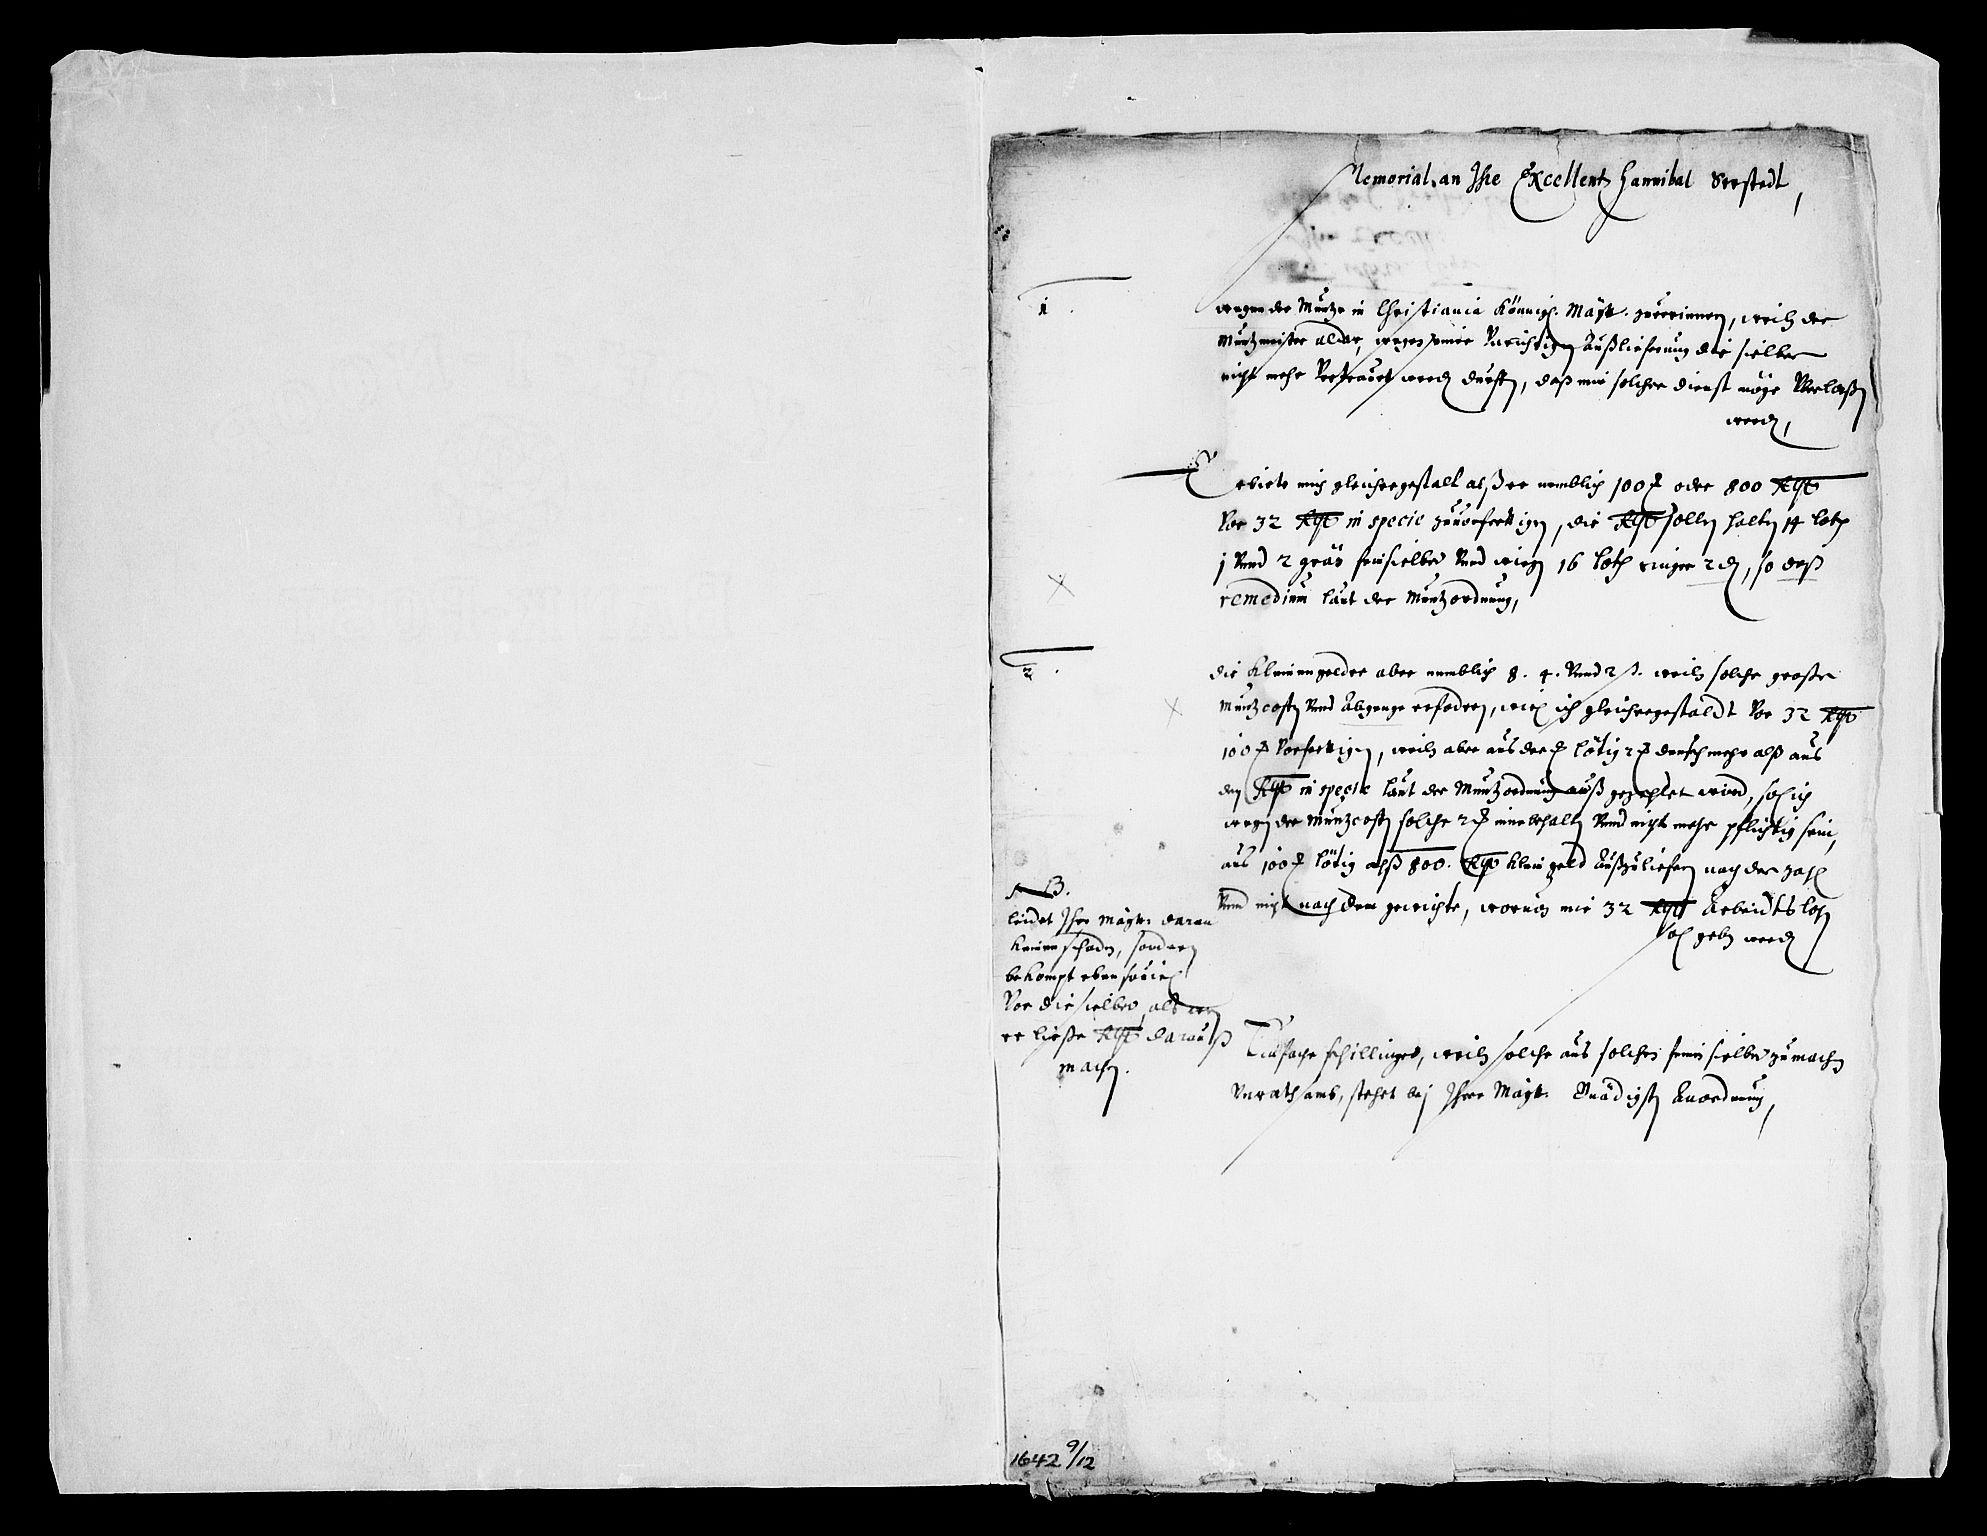 Memorial an Ihre Excellentz Hannibal Seestedt,
1.
wegen der Müntze in Christiania Königl. Maytt. zuerinnern, weiln der
Müntzmeister aldar, wegen seiner Unrichtigen Außlieferung die silber
nicht mehr Vertrauet werden durfte, daß mir solcher dienst möge Verlaßen
werden,
Erbiete mich gleichergestalt alß er nemblich 100 ℔ oder 800 Rthl
Vor 32 Rthl in specie zuverfertigen, die Rthl sollen halten 14 loth
j Unnd 2 grän feinsilber Unnd wiegen 16 loth ringer 2 d, so daß
remedium laut der Müntzordnung,
2.
die Kleinengelder aber nemblich 8. 4. Unnd 2 ß. weiln solche große
Müntzcosten Unnd Abgange erfodern, wil ich gleichergestaldt Vor 32 Rthl
100 ℔ Verfertigen, weiln aber aus der ℔ lötig 2 ß deusch mehr alß aus
den Rthl in specie laut der Müntzordnung auß gezehlet wird, sol ich
wegen der müntzcosten solche 2 ß innebehalten Unnd nicht mehr pflichtig sein,
aus 100 ℔ lötig alß 800. Rthl Klein geld Außzuliefern nach der zahl
Unnd nicht nach dem gewichte, worvon mir 32 Rthl Arbeidtslohn
sol geben werden
NB.
leidet Ihre Maytt. daran
keinen schaden, sondern
bekompt eben souiel
Vor die silber, als wen
er ließe Rthl darauß
machen.
Einfache schillinger, weiln solche aus solchen fein silber zumachen
Unrathsamb, stehet bej Ihrer Maytt. Gnädigsten Anordnung,
1642 9/12